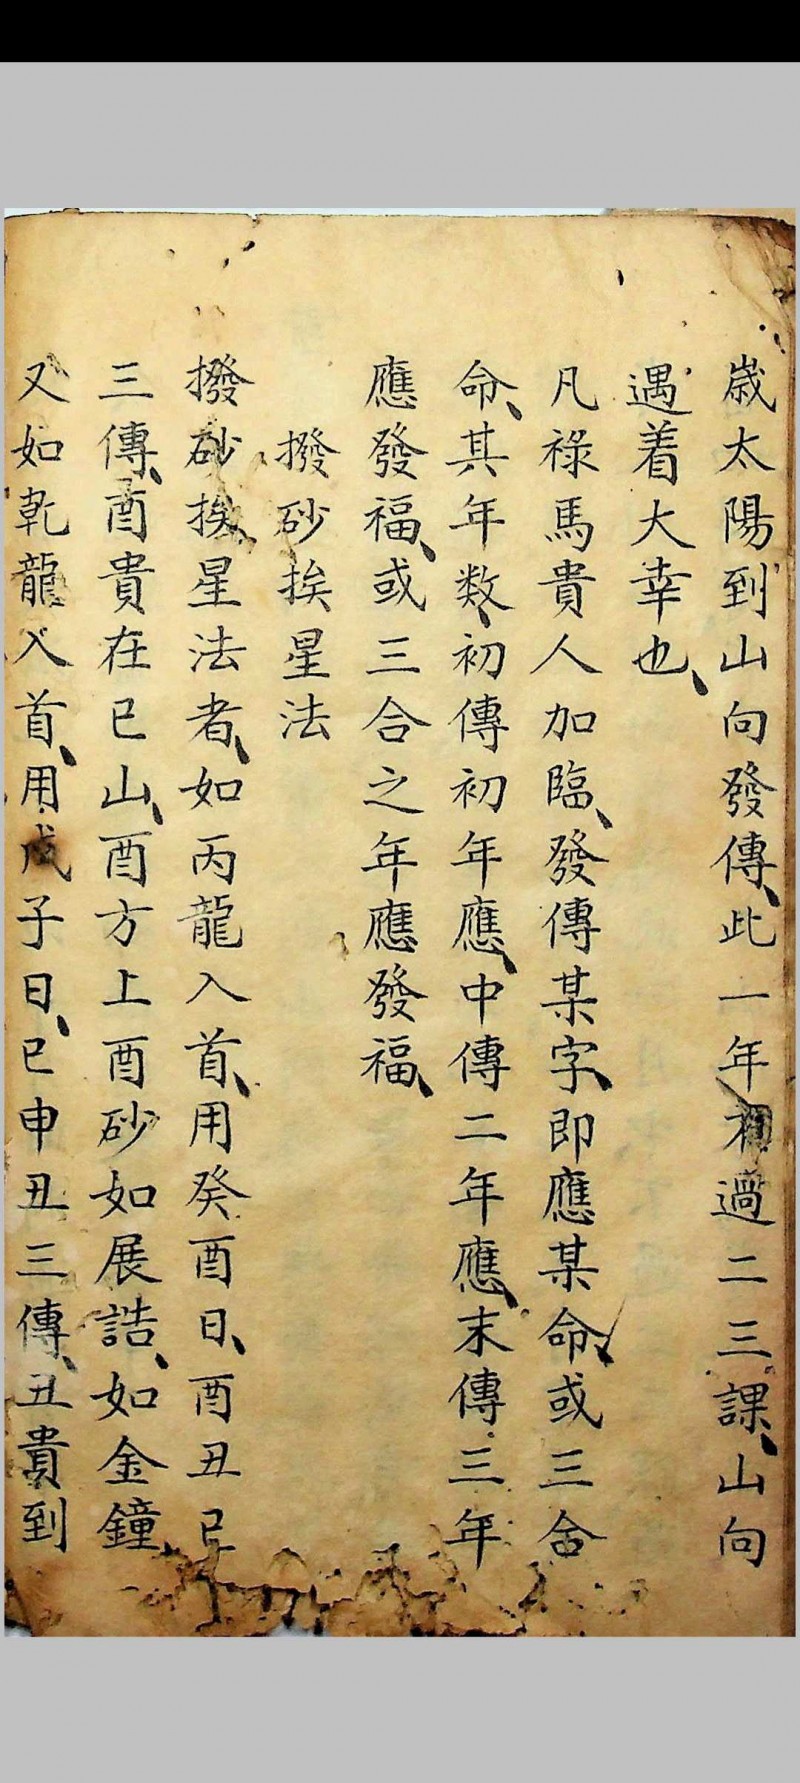 歲太陽到山向發傳、此一年不過二三課、山向
遇着大幸也、
凡祿馬貴人加臨、發傳某字、即應某命、或三合
命、其年数、初傳初年應、中傳二年應、末傳三年
應發福、或三合之年應發福、
撥砂挨星法
撥砂挨星法者、如丙龍入首、用癸酉日、酉丑巳
三傳、酉貴在巳山、酉方上酉砂如展誥、如金鐘、
又如乾龍入首、用戊子日、巳申丑三傳、丑貴到